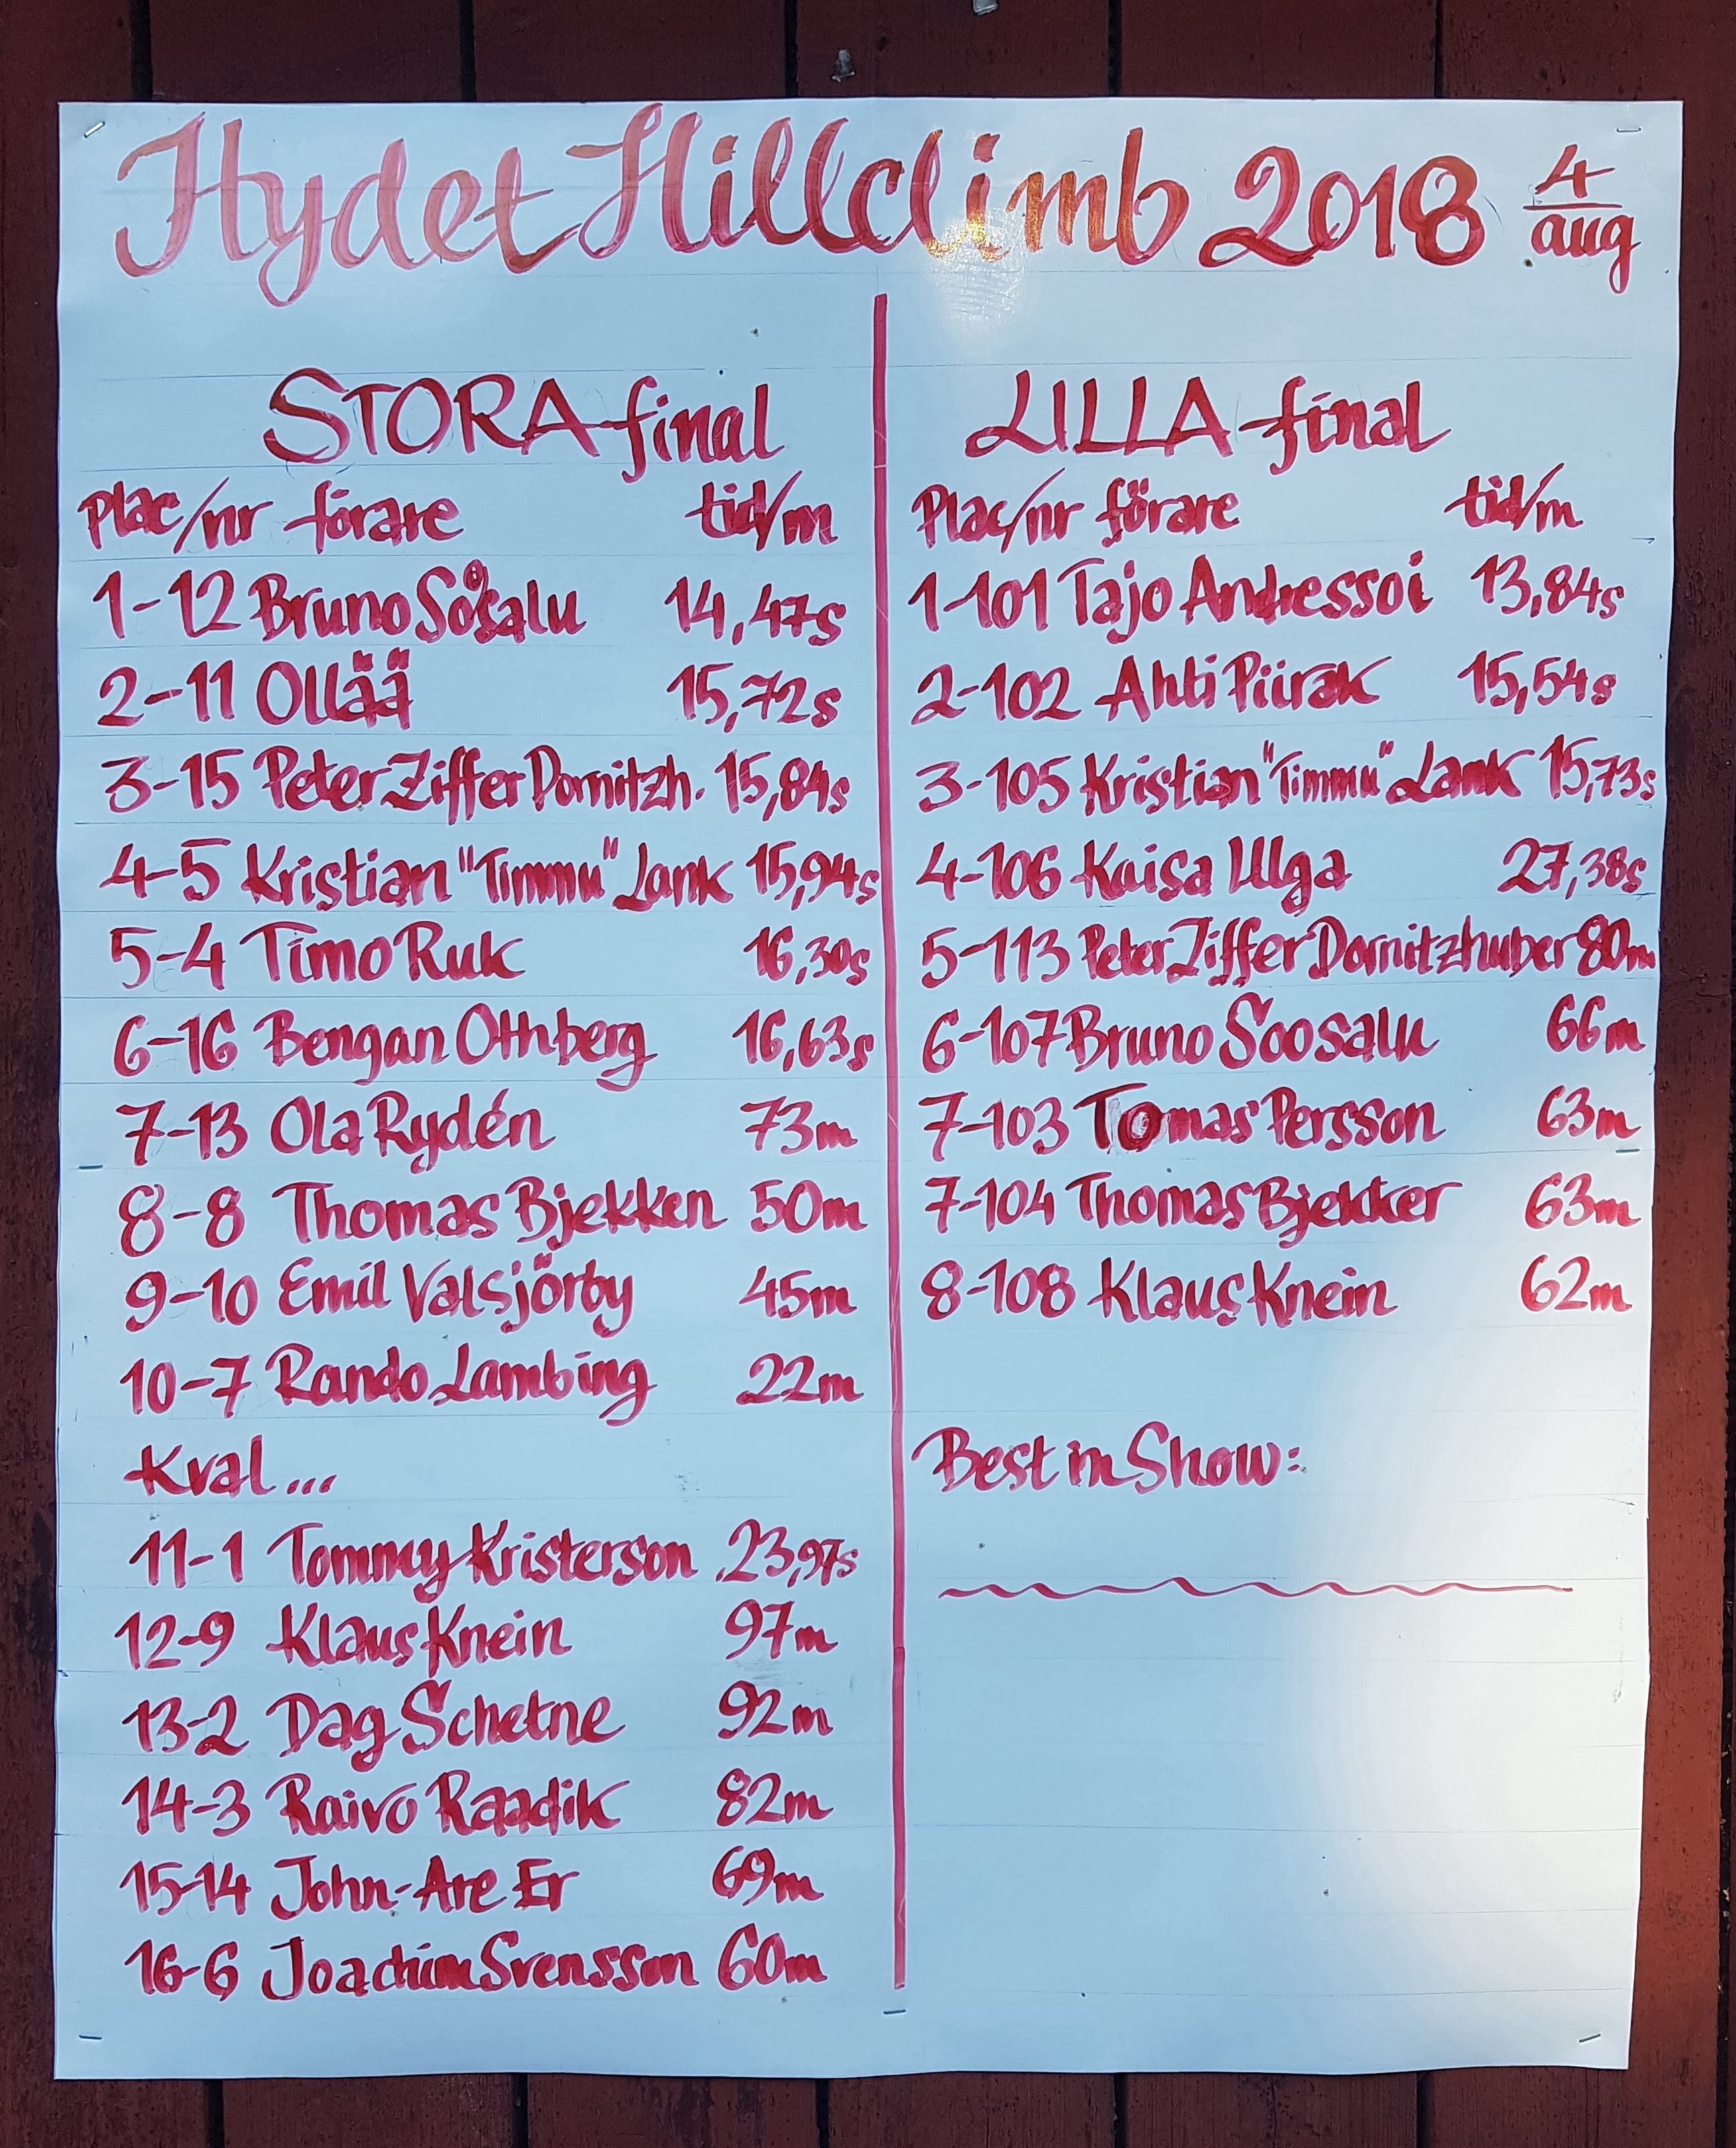 Hydet Hillclimb 2018 4/aug
STORA final
Plac/nr förare tid/m
1-12 Bruno Soosalu 14,47s
2-11 Ollää 15,72s
3-15 Peter Ziffer Dornitzh. 15,84s
4-5 Kristian "Timmu" Lank 15,94s
5-4 Timo Ruk 16,30s
6-16 Bengan Othberg 16,63s
7-13 Ola Rydén 73m
8-8 Thomas Bjekken 50m
9-10 Emil Valsjörby 45m
10-7 Rando Lambing 22m
Kval...
11-1 Tommy Kristerson 23,97s
12-9 Klaus Knein 97m
13-2 Dag Schetne 92m
14-3 Raivo Raadik 82m
15-14 John-Are Er 69m
16-6 Joachim Svensson 60m
LILLA final
Plac/nr förare tid/m
1-101 Tajo Andressoi 13,84s
2-102 Ahti Piirak 15,54s
3-105 Kristian "Timmu" Lank 15,73s
4-106 Kaisa Ulga 27,38s
5-113 Peter Ziffer Dornitzhuber 80m
6-107 Bruno Soosalu 66m
7-103 Tomas Persson 63m
7-104 Thomas Bjekker 63m
8-108 Klaus Knein 62m
Best in Show: